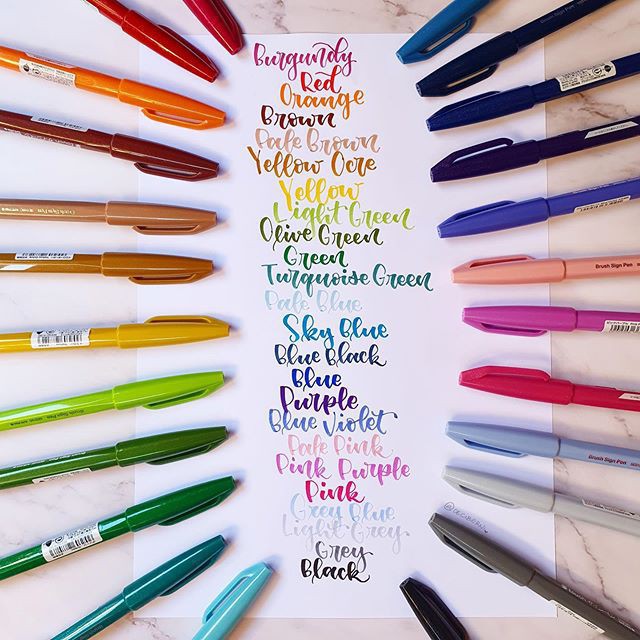 Burgundy
Red
Orange
Brown
Pale Brown
Yellow Ocre
Yellow
Light Green
Olive Green
Green
Turquoise Green
Pale Blue
Sky Blue
Blue Black
Blue
Purple
Blue Violet
Pale Pink
Pink Purple
Pink
Grey Blue
Light Grey
Grey
Black
Brush Sign Pen
Brush Sign Pen